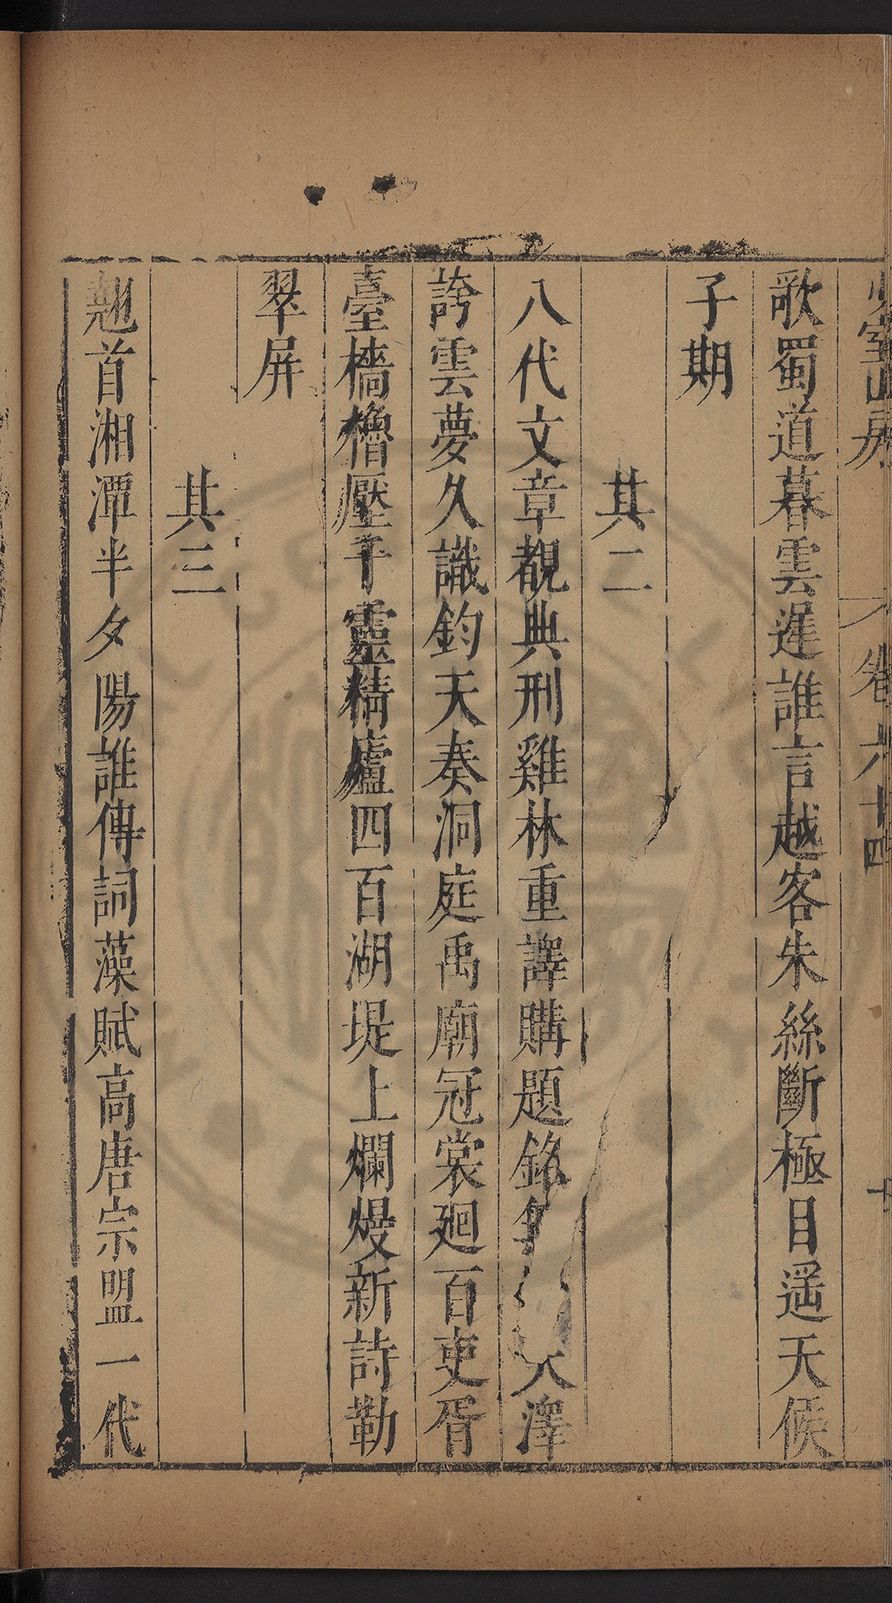 少室山房 卷六十四 十
歌蜀道暮雲遲誰言越客朱絲斷極目遥天候
子期
其二
八代文章覩典刑雞林重譯購題銘 大澤
誇雲夢久識鈞天奏洞庭禹廟冠裳廻百吏胥
臺檣櫓壓千靈精廬四百湖堤上爛熳新詩勒
翠屏
其三
翹首湘潭半夕陽誰傳詞藻賦高唐宗盟一代